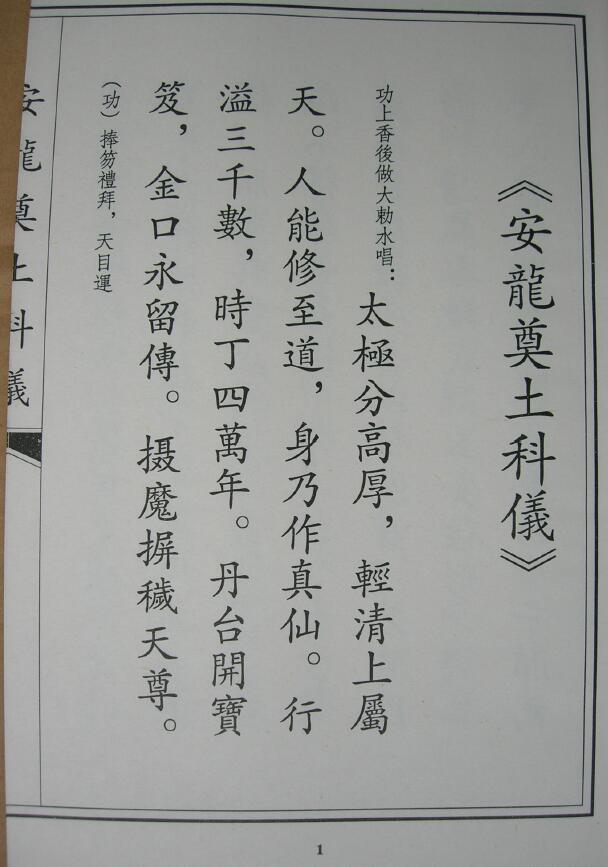 《安龍奠土科儀》
功上香後做大勅水唱：太極分高厚，輕清上屬
天。人能修至道，身乃作真仙。行
溢三千數，時丁四萬年。丹台開寶
笈，金口永留傳。摄魔摒穢天尊。
（功）捧笏禮拜，天目運
安龍奠土科儀
1